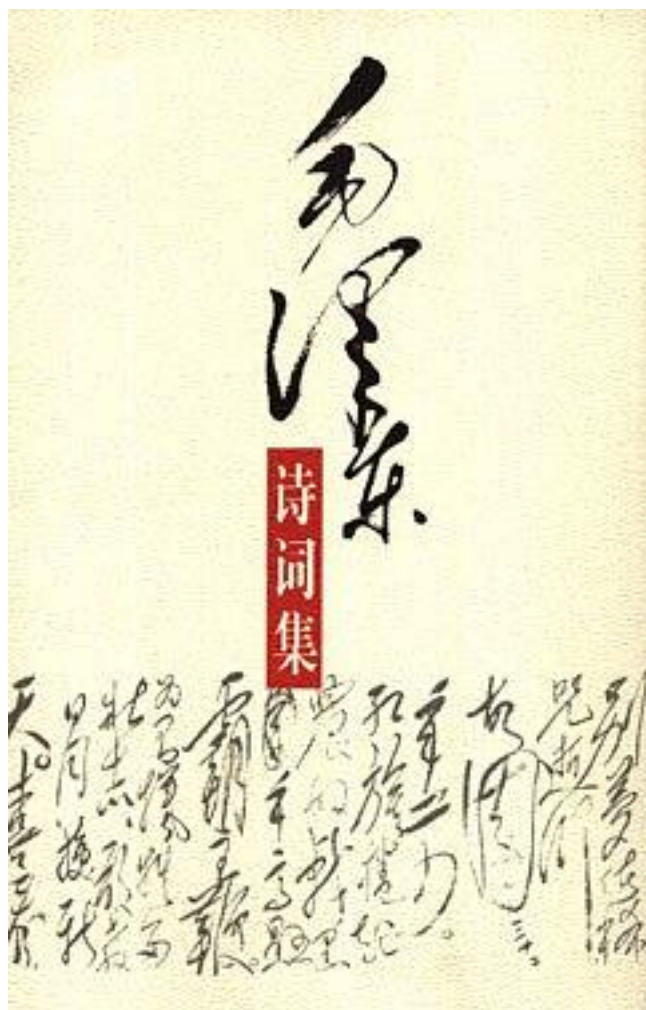 毛泽东
诗词集
别梦依稀
咒逝川
故园三十
二年前。
红旗卷起
农奴戟黑
手高悬
霸主鞭。
为有牺牲多
壮志敢教
日月换新
天。喜看